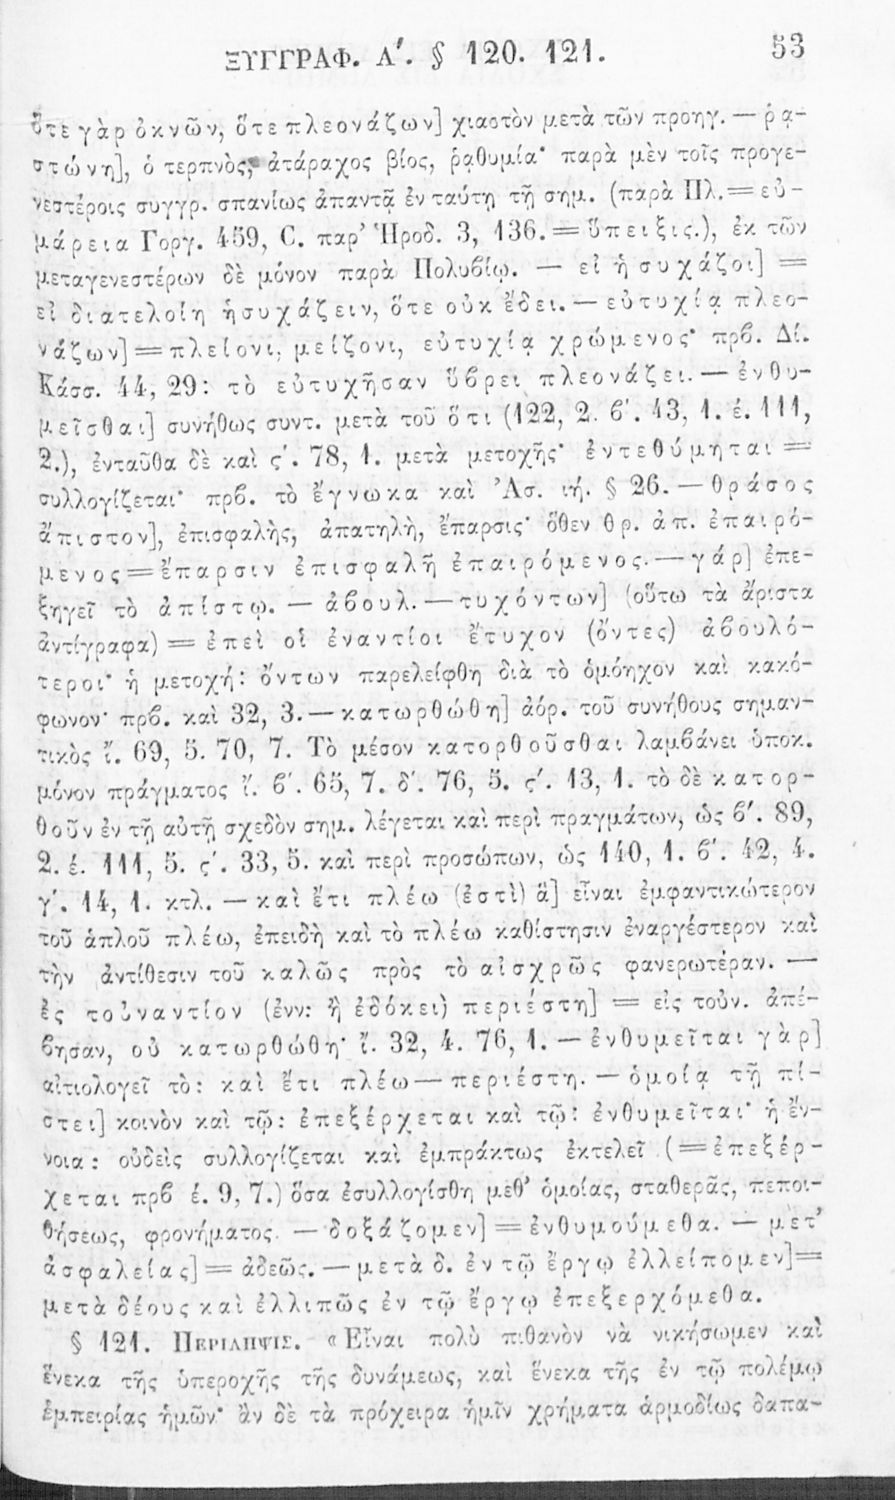 ΞΥΓΓΡΑΦ. Α΄. § 120. 121. 53
ὅτε γὰρ ὀκνῶν, ὅτε πλεονάζων] χιαστὸν μετὰ τῶν προηγ. — ῥᾳ-
στώνη], ὁ τερπνὸς, ἀτάραχος βίος, ῥᾳθυμία· παρὰ μὲν τοῖς προγε-
νεστέροις συγγρ. σπανίως ἀπαντᾷ ἐν ταύτῃ τῇ σημ. (παρὰ Πλ. = εὐ-
μάρεια Γοργ. 459, C. παρ’ Ἡροδ. 3, 136. = ὕπειξις.), ἐκ τῶν
μεταγενεστέρων δὲ μόνον παρὰ Πολυβίῳ. — εἰ ἡσυχάζοι] =
εἰ διατελοίη ἡσυχάζειν, ὅτε οὐκ ἔδει. — εὐτυχίᾳ πλεο-
νάζων] = πλείονι, μείζονι, εὐτυχίᾳ χρώμενος· πρβ. Δί.
Κάσσ. 44, 29: τὸ εὐτυχῆσαν ὕβρει πλεονάζει. — ἐνθυ-
μεῖσθαι] συνήθως συντ. μετὰ τοῦ ὅτι (122, 2. β΄. 43, 1. έ. 111,
2.), ἐνταῦθα δὲ καὶ ς΄. 78, 1. μετὰ μετοχῆς· ἐντεθύμηται =
συλλογίζεται· πρβ. τὸ ἔγνωκα καὶ Ἀσ. ιή. § 26. — θράσος
ἄπιστον], ἐπισφαλὴς, ἀπατηλὴ, ἔπαρσις· ὅθεν θρ. ἀπ. ἐπαιρό-
μενος = ἔπαρσιν ἐπισφαλῆ ἐπαιρόμενος. — γάρ] ἐπε-
ξηγεῖ τὸ ἀπίστῳ. — ἀβουλ. — τυχόντων] (οὕτω τὰ ἄριστα
ἀντίγραφα) = ἐπεὶ οἱ ἐναντίοι ἔτυχον (ὄντες) ἀβουλό-
τεροι· ἡ μετοχή: ὄντων παρελείφθη διὰ τὸ ὁμόηχον καὶ κακό-
φωνον· πρβ. καὶ 32, 3. — κατωρθώθη] ἀόρ. τοῦ συνήθους σημαν-
τικὸς ἴ. 69, 5. 70, 7. Τὸ μέσον κατορθοῦσθαι λαμβάνει ὑποκ.
μόνον πράγματος ἴ. β΄. 65, 7. δ΄. 76, 5. ς΄. 13, 1. τὸ δὲ κατορ-
θοῦν ἐν τῇ αὐτῇ σχεδὸν σημ. λέγεται καὶ περὶ πραγμάτων, ὡς β΄. 89,
2. έ. 111, 5. ς΄. 33, 5. καὶ περὶ προσώπων, ὡς 140, 1. β΄. 42, 4.
γ΄. 14, 1. κτλ. — καὶ ἔτι πλέω (ἐστὶ) ἃ] εἶναι ἐμφαντικώτερον
τοῦ ἁπλοῦ πλέω, ἐπειδὴ καὶ τὸ πλέω καθίστησιν ἐναργέστερον καὶ
τὴν ἀντίθεσιν τοῦ καλῶς πρὸς τὸ αἰσχρῶς φανερωτέραν. —
ἐς τοὐναντίον (ἐνν: ἢ ἐδόκει) περιέστη] = εἰς τοὐν. ἀπέ-
βησαν, οὐ κατωρθώθη· ἴ. 32, 4. 76, 1. — ἐνθυμεῖται γὰρ]
αἰτιολογεῖ τὸ: καὶ ἔτι πλέω — περιέστη. — ὁμοίᾳ τῇ πί-
στει] κοινὸν καὶ τῷ: ἐπεξέρχεται καὶ τῷ: ἐνθυμεῖται· ἡ ἔν-
νοια: οὐδεὶς συλλογίζεται καὶ ἐμπράκτως ἐκτελεῖ (= ἐπεξέρ-
χεται πρβ έ. 9, 7.) ὅσα ἐσυλλογίσθη μεθ’ ὁμοίας, σταθερᾶς, πεποι-
θήσεως, φρονήματος. — δοξάζομεν] = ἐνθυμούμεθα. — μετ’
ἀσφαλείας] = ἀδεῶς. — μετὰ δ. ἐν τῷ ἔργῳ ἐλλείπομεν] =
μετὰ δέους καὶ ἐλλιπῶς ἐν τῷ ἔργῳ ἐπεξερχόμεθα.
§ 121. ΠΕΡΙΛΗΨΙΣ. «Εἶναι πολὺ πιθανὸν νὰ νικήσωμεν καὶ
ἕνεκα τῆς ὑπεροχῆς τῆς δυνάμεως, καὶ ἕνεκα τῆς ἐν τῷ πολέμῳ
ἐμπειρίας ἡμῶν· ἂν δὲ τὰ πρόχειρα ἡμῖν χρήματα ἁρμοδίως δαπα-